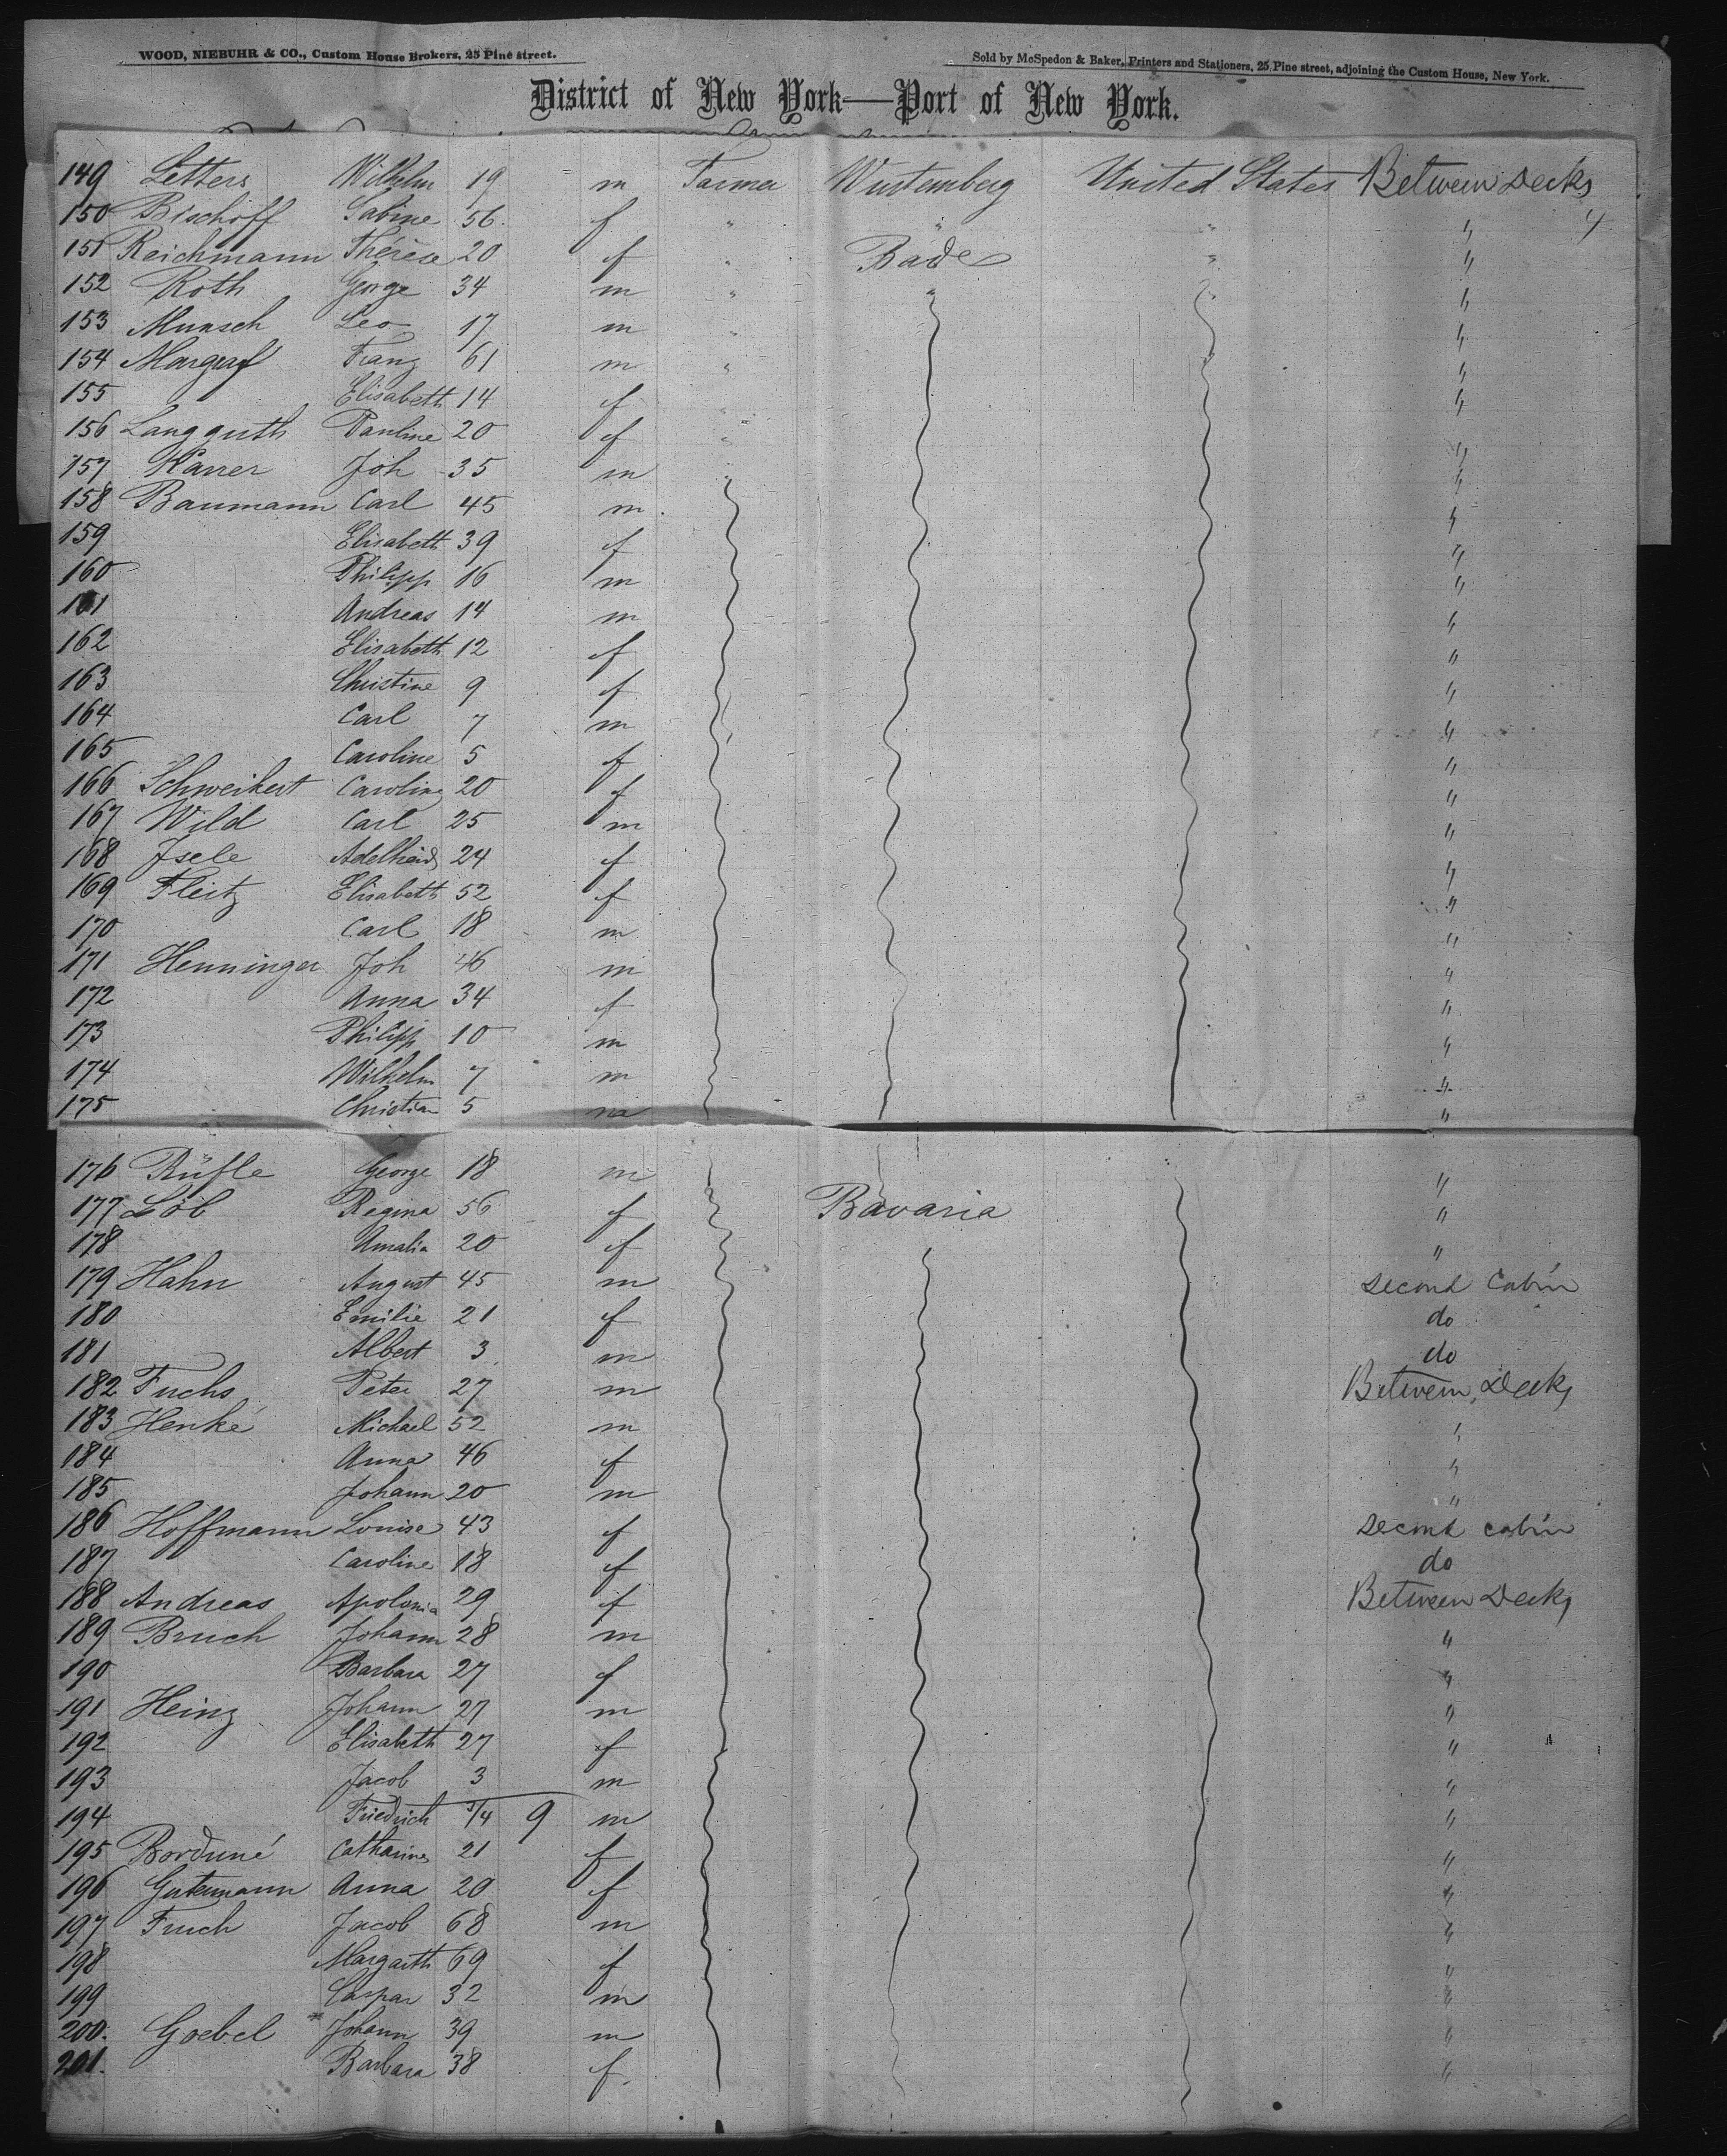 WOOD, NIEBUHR & CO., Custom House Brokers, 25 Pine street.
Sold by McSpedon & Baker, Printers and Stationers, 25 Pine street, adjoining the Custom House, New York.
District of New York—Port of New York.
149 Letters Wilhelm 19 m Farmer Wurtemberg United States Between Decks
150 Bischoff Sabine 56 f " " " " 4
151 Reichmann Thérèse 20 f " Bade " "
152 Roth George 34 m " " " "
153 Munsch Leo 17 m " "
154 Margraf Franz 61 m " "
155 Elisabeth 14 f "
156 Langguth Pauline 20 f " "
157 Karrer Joh 35 m " "
158 Baumann Carl 45 m "
159 Elisabeth 39 f "
160 Philipp 16 m "
161 Andreas 14 m "
162 Elisabeth 12 f "
163 Christine 9 f "
164 Carl 7 m "
165 Caroline 5 f "
166 Schweikert Caroline 20 f "
167 Wild Carl 25 m "
168 Isele Adelheid 24 f "
169 Fleitz Elisabeth 52 f "
170 Carl 18 m "
171 Henninger Joh 46 m "
172 Anna 34 f "
173 Philipp 10 m "
174 Wilhelm 7 m "
175 Christian 5 m "
176 Rüfle George 18 m "
177 Löb Regina 56 f Bavaria "
178 Amalia 20 f "
179 Hahn August 45 m Second Cabin
180 Emilie 21 f do
181 Albert 3 m do
182 Fuchs Peter 27 m Between Decks
183 Henke Michael 52 m "
184 Anna 46 f "
185 Johann 20 m "
186 Hoffmann Louise 43 f Second cabin
187 Caroline 18 f do
188 Andreas Apolonia 29 f Between Decks
189 Bruch Johann 28 m "
190 Barbara 27 f "
191 Heinz Johann 27 m "
192 Elisabeth 27 f "
193 Jacob 3 m "
194 Friedrich 3/4 9 m "
195 Borduné Catharine 21 f "
196 Gutermann Anna 20 f "
197 Fruch Jacob 68 m "
198 Margarth 69 f "
199 Caspar 32 m "
200. Goebel Johann 39 m "
201. Barbara 38 f. "